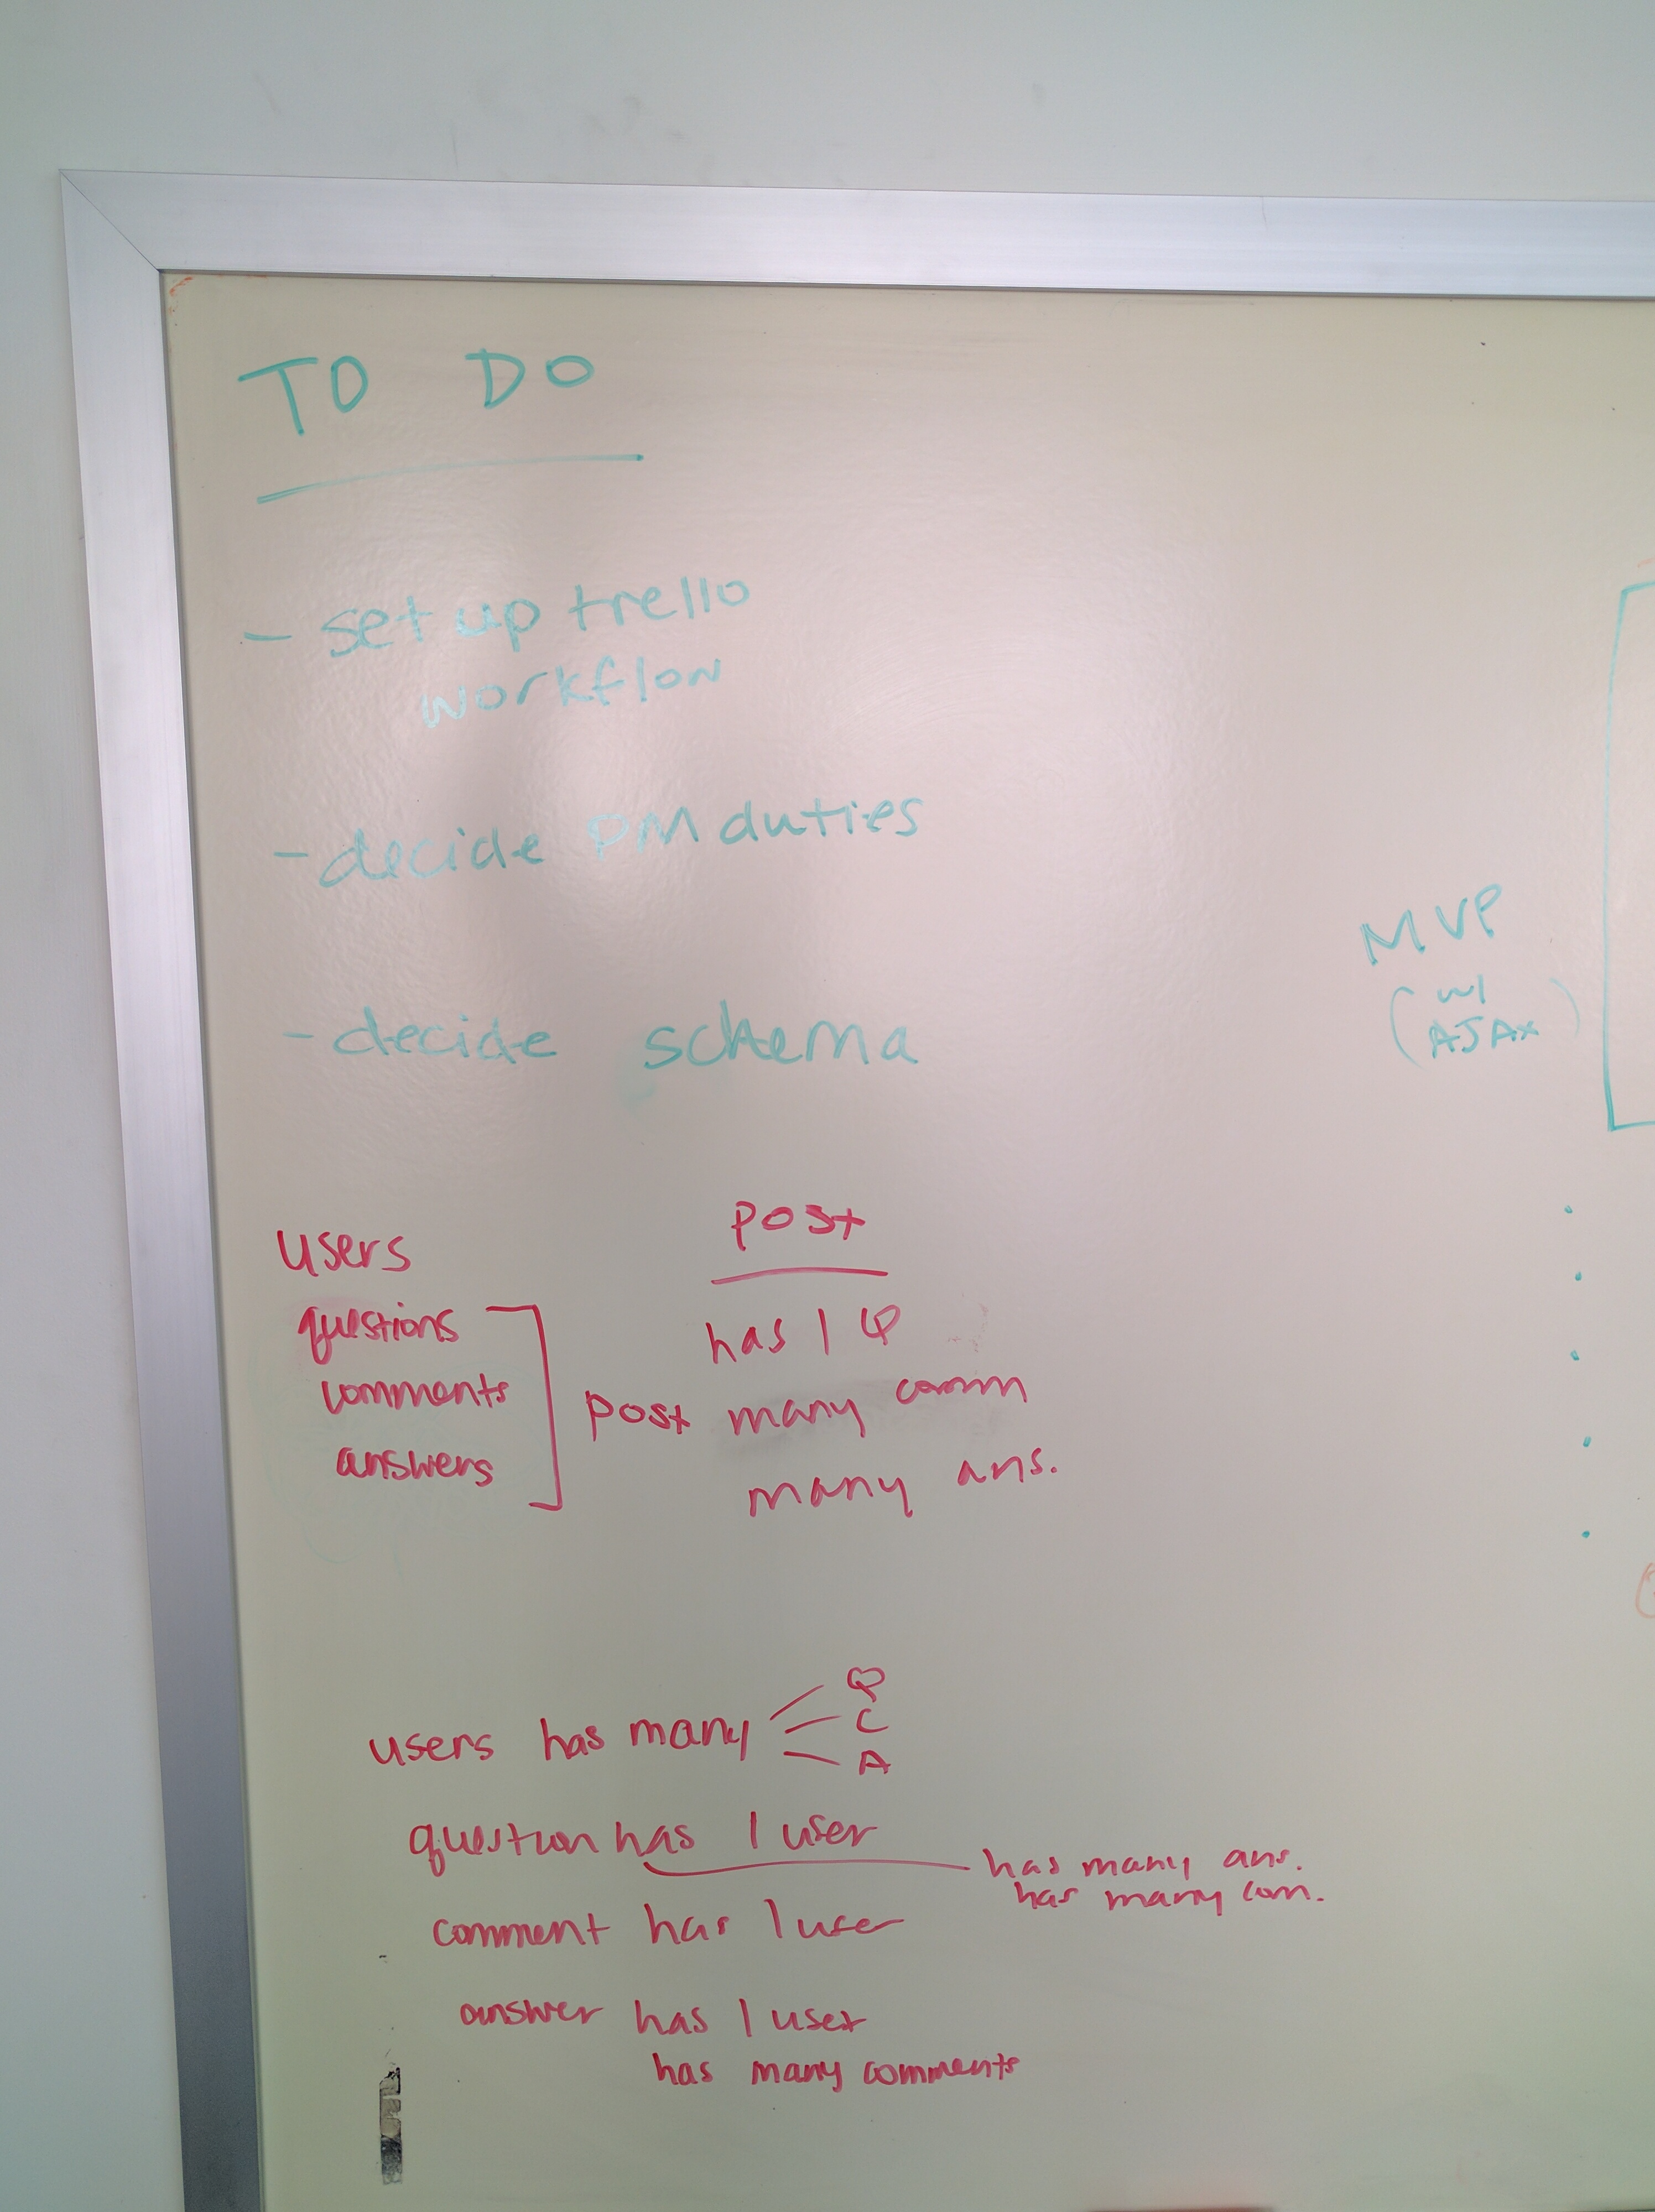 TO DO
- set up trello
workflow
- decide PM duties
- decide schema
MVP
(w/
AJAX)
users
questions
comments
answers
post
post
has 1 Q
many comm
many ans.
users has many
Q
C
A
question has 1 user
has many ans.
has many com.
comment has 1 user
answer has 1 user
has many comments